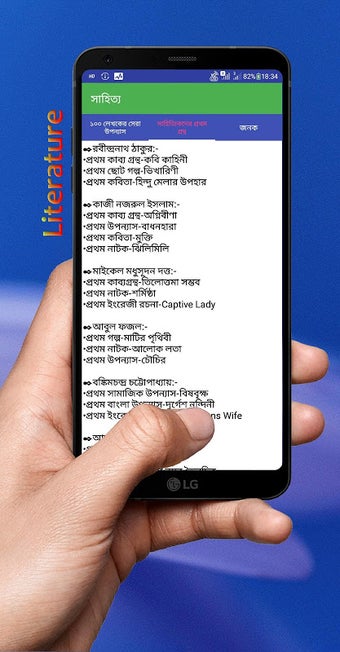 Literature
HD
82% 18:34
সাহিত্য
১০০ লেখকের সেরা
উপন্যাস
সাহিত্যিকদের প্রথম
গ্রন্থ
জনক
➨রবীন্দ্রনাথ ঠাকুর:-
•প্রথম কাব্য গ্রন্থ-কবি কাহিনী
•প্রথম ছোট গল্প-ভিখারিণী
•প্রথম কবিতা-হিন্দু মেলার উপহার
➨কাজী নজরুল ইসলাম:-
•প্রথম কাব্য গ্রন্থ-অগ্নিবীণা
•প্রথম উপন্যাস-বাধনহারা
•প্রথম কবিতা-মুক্তি
•প্রথম নাটক-ঝিলিমিলি
➨মাইকেল মধুসূদন দত্ত:-
•প্রথম কাব্যগ্রন্থ-তিলোত্তমা সম্ভব
•প্রথম নাটক-শর্মিষ্ঠা
•প্রথম ইংরেজী রচনা-Captive Lady
➨আবুল ফজল:-
•প্রথম গল্প-মাটির পৃথিবী
•প্রথম নাটক-আলোক লতা
•প্রথম উপন্যাস-চৌচির
➨বঙ্কিমচন্দ্র চট্টোপাধ্যায়:-
•প্রথম সামাজিক উপন্যাস-বিষবৃক্ষ
•প্রথম বাংলা উপন্যাস-দুর্গেশ নন্দিনী
•প্রথম ইংরে ns Wife
LG